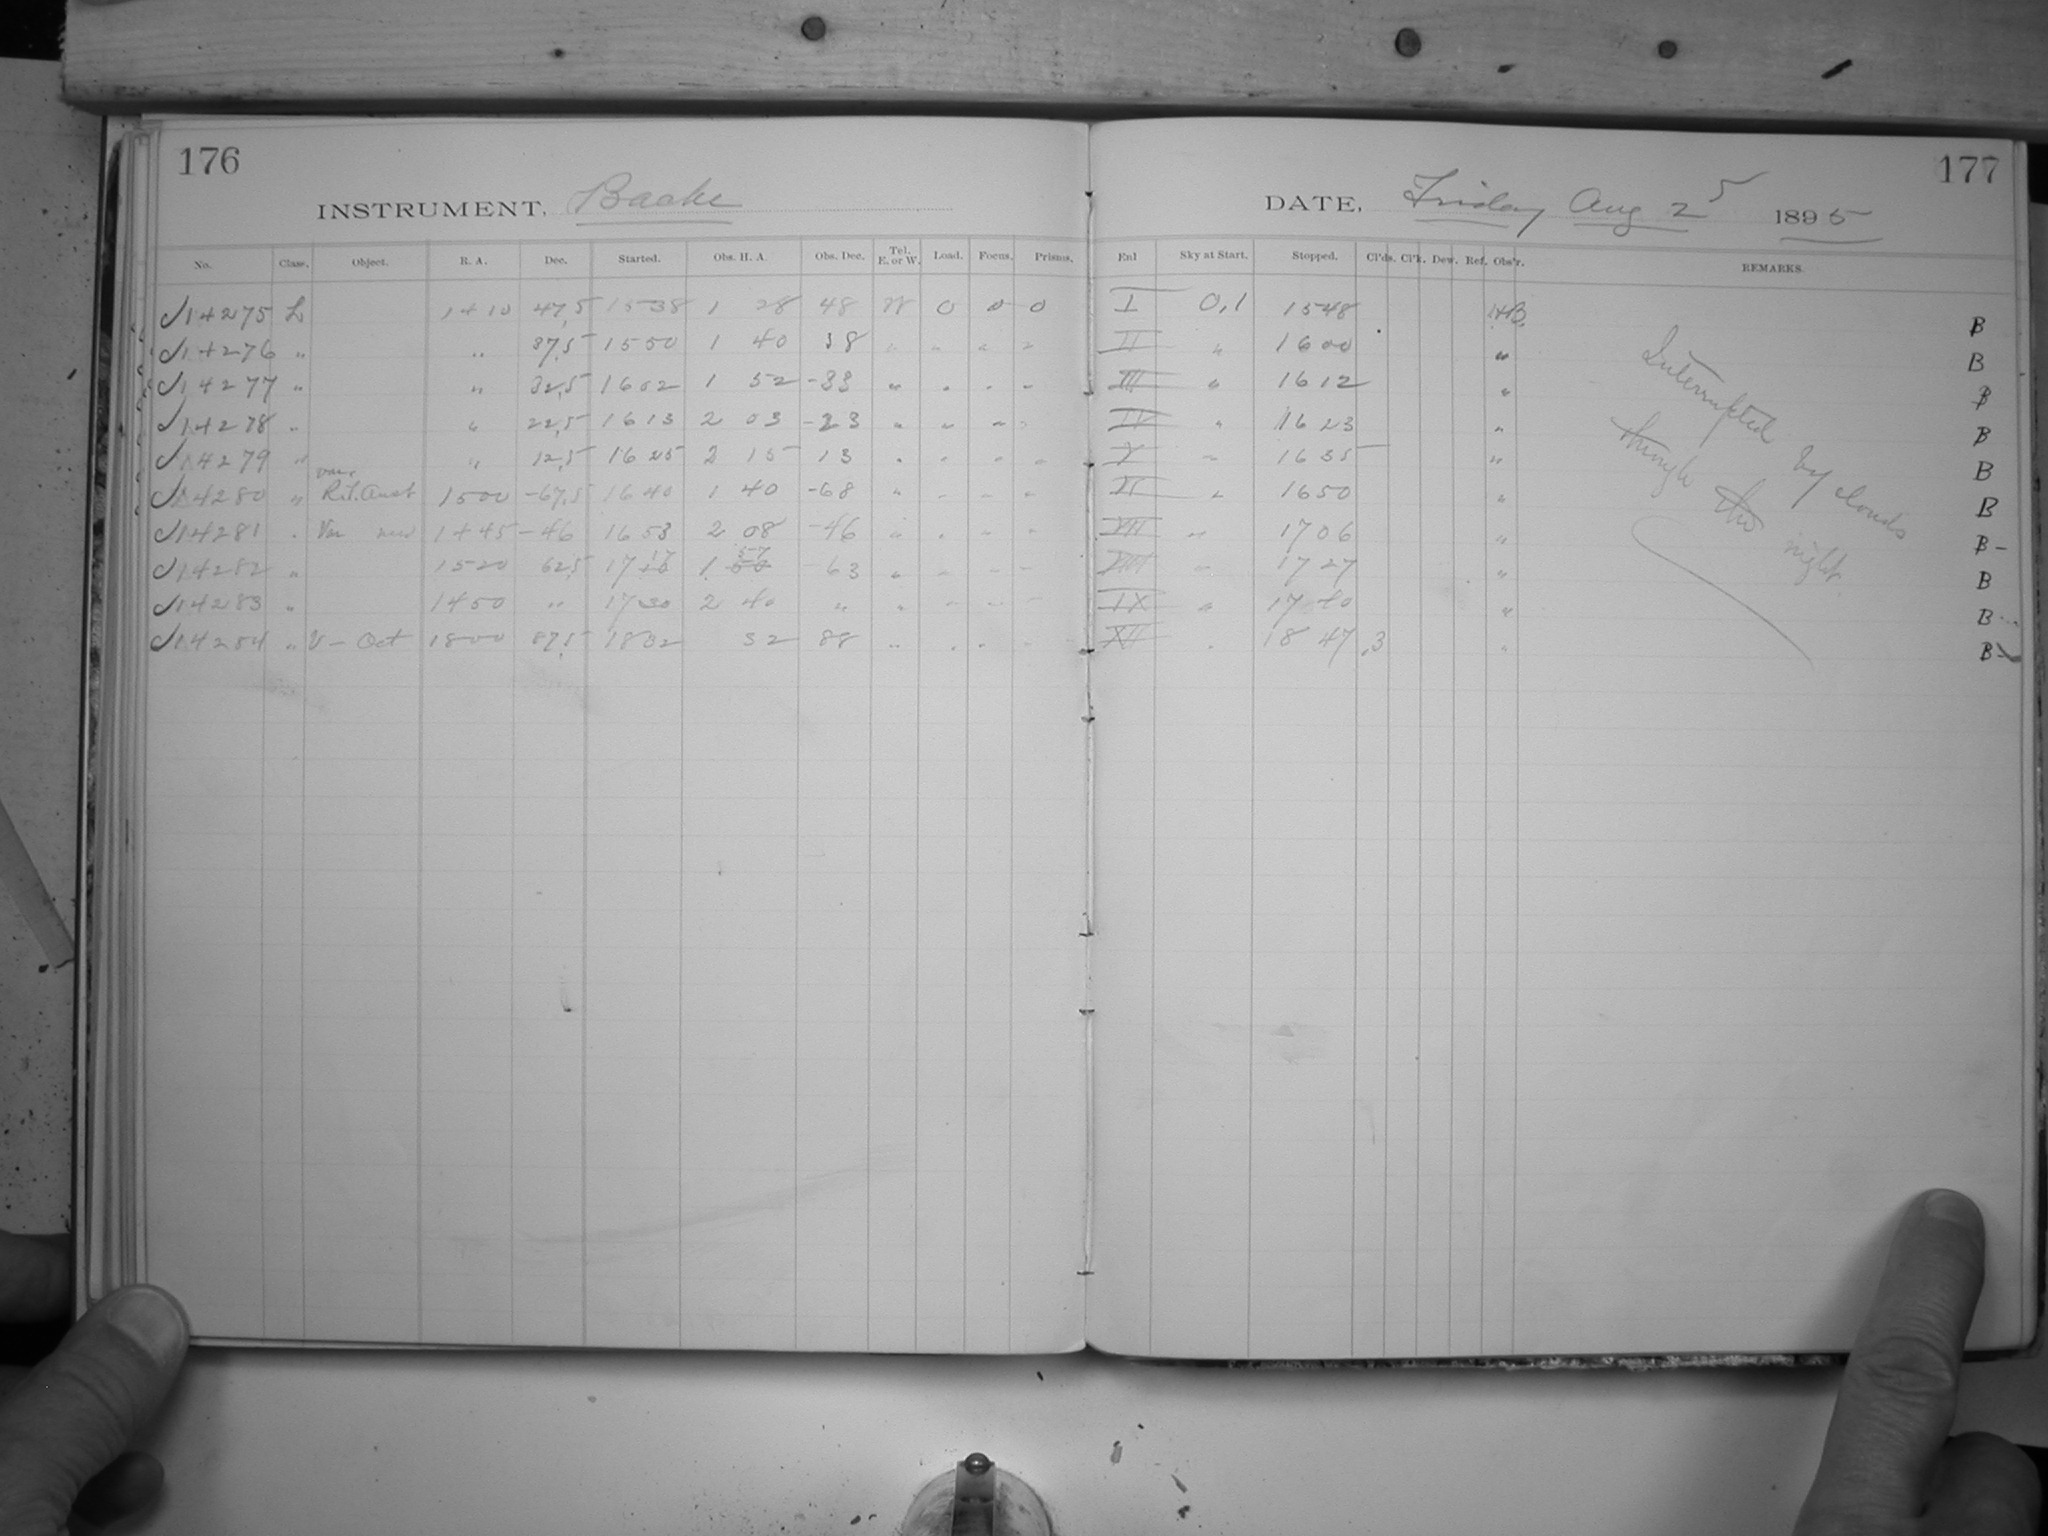 176
INSTRUMENT, Bache
No. Class. Object. R. A. Dec. Started. Obs. H. A. Obs. Dec. Tel. E. or W. Load. Focus. Prisms.
√14275 L 1410 47,5 1538 1 28 48 W 0 0 0
√14276 " " 37,5 1550 1 40 38 " " " "
√14277 " " 32,5 1602 1 52 -33 " " " "
√14278 " " 22,5 1613 2 03 -23 " " " "
√14279 " " 12,5 1625 2 15 13 " " " "
√14280 " 1500 -67,5 1640 1 40 -68 " " " "
√14281 " 1445 -46 1653 2 08 -46 " " " "
√14282 " 1520 62,5 17 17 1 57 -63 " " " "
√14283 " 1450 " 1730 2 40 " " " " "
√14284 " V - Oct 1800 87,5 1832 32 88 " " " "
177
DATE, Friday Aug 2 1895
Enl Sky at Start. Stopped. Cl'ds. Cl'k. Dew. Ref. Obs'r. REMARKS.
I 0,1 1548 B
II " 1600 " B
III " 1612 " B
IV " 1623 " B
V " 1635 " B
VI " 1650 " B
VII " 1706 " B-
VIII " 1727 " B
IX " 1740 " B-
XII " 1847 ,3 " B-
Interrupted by clouds
through the night.